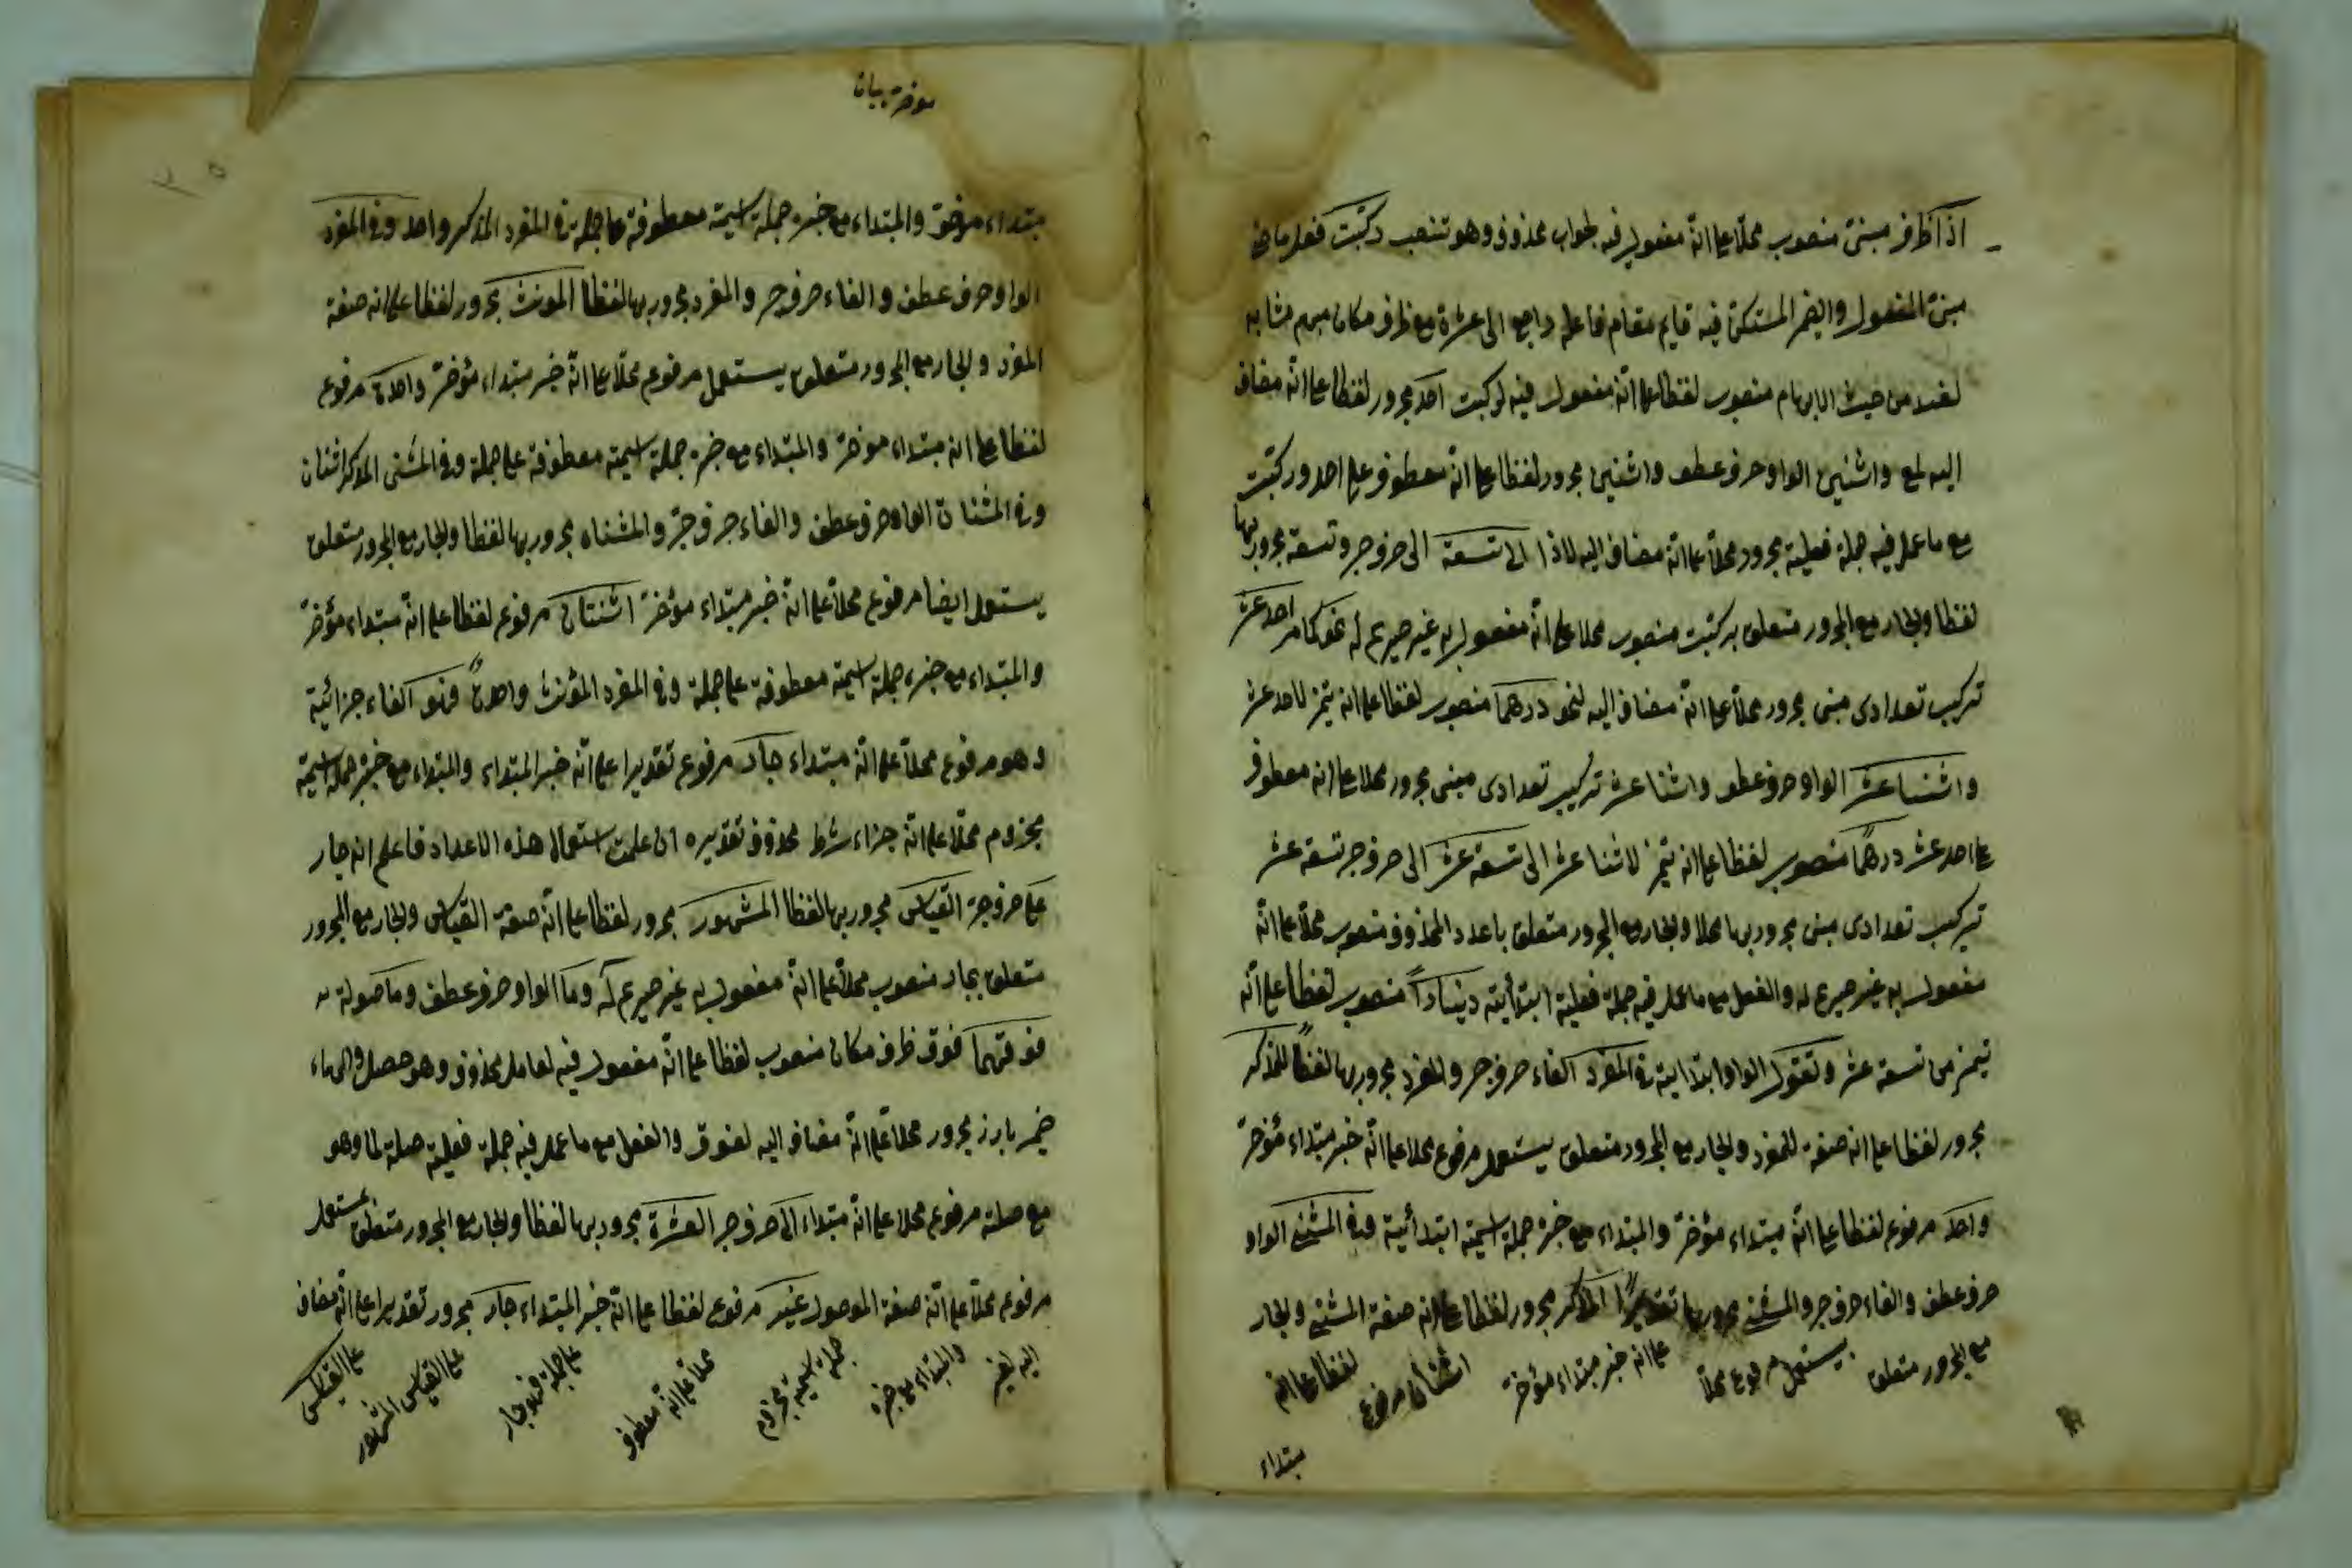 اذا ظرف مبنى منصوب محلا على انه مفعول فيه لجواب محذوف وهو تنصب ركبت فعل ماض
مبنى المفعول والضمير المستكن فيه قايم مقام فاعله راجع الى عشرة مع ظرف مكان مبهم مشابه
لعند من حيث الابهام منصوب لفظا على انه مفعول فيه لركبت احد مجرور لفظا على انه مضاف
اليه لمع واثنين الواو حرف عطف واثنين مجرور لفظا على انه معطوف على احد وركبت
مع ما عمل فيه جملة فعلية مجرور محلا على انه مضاف اليه لاذا الى تسعة الى حرف جر وتسعة مجرور بها
لفظا والجار مع المجرور متعلق بركبت منصوب محلا على انه مفعول به غير صريح له نحو احد عشر
تركيب تعدادى مبنى مجرور محلا على انه مضاف اليه لنحو درهما منصوب لفظا على انه تميز لاحد عشر
واثنا عشر الواو حرف عطف واثنا عشر تركيب تعدادى مبنى مجرور محلا على انه معطوف
على احد عشر درهما منصوب لفظا على انه تميز لاثنا عشر الى تسعة عشر الى حرف جر تسعة عشر
تركيب تعدادى مبنى مجرور بها محلا والجار مع المجرور متعلق باعدد المحذوف منصوب محلا على انه
مفعول به غير صريح له والفعل مع ما عمل فيه جملة فعلية ابتدأية دينارا منصوب لفظا على انه
تميز من تسعة عشر وتقول الواو ابتداية فى المفرد الفاء حرف جر والمفرد مجرور بها لفظا المذكر
مجرور لفظا على انه صفة للمفرد والجار مع المجرور متعلق يستعمل مرفوع محلا على انه خبر مبتداء مؤخر
واحد مرفوع لفظا على انه مبتداء مؤخر والمبتداء مع خبره جملة اسمية ابتدأية وفى المثنى الواو
حرف عطف والفاء حرف جر والمثنى مجرور بها تقديرا المذكر مجرور لفظا على انه صفة المثنى والجار
مع المجرور متعلق يستعمل مرفوع محلا على انه خبر مبتداء مؤخر اثنان مرفوع لفظا على انه
مبتداء
مبتداء مؤخر والمبتداء مع خبره جملة اسمية معطوفة على جملة فى المفرد المذكر واحد وفى المفرد
الواو حرف عطف والفاء حرف جر والمفرد مجرور بها لفظا المونث مجرور لفظا على انه صفة
المفرد والجار مع المجرور متعلق يستعمل مرفوع محلا على انه خبر مبتداء مؤخر واحدة مرفوع
لفظا على انه مبتداء موخر والمبتداء مع خبره جملة اسمية معطوفة على جملة وفى المثنى المذكر اثنان
وفى المثناة الواو حرف عطف والفاء حرف جر والمثناه مجرور بها لفظا والجار مع المجرور متعلق
يستعمل ايضا مرفوع محلا على انه خبر مبتداء مؤخر اثنتان مرفوع لفظا على انه مبتداء مؤخر
والمبتداء مع خبره جملة اسمية معطوفة على جملة وفى المفرد المؤنث واحدة فهو الفاء جزائية
وهو مرفوع محلا على انه مبتداء جار مرفوع تقديرا على انه خبر المبتداء والمبتداء مع خبره جملة اسمية
مجزوم محلا على انه جزاء شرط محذوف تقديره ان علمت استعمال هذه الاعداد فاعلم انه جار
على حرف جر القياس مجرور بها لفظا المشهور مجرور لفظا على انه صفة القياس والجار مع المجرور
متعلق بجار منصوب محلا على انه مفعول به غير صريح له وما الواو حرف عطف وما
فوقهما فوق ظرف مكان منصوب لفظا على انه مفعول فيه لعامل محذوف وهو حصل والهاء
ضمير بارز مجرور محلا على انه مضاف اليه لفوق والفعل مع ما عمل فيه جملة فعلية صلة لما وهو
مع صلة مرفوع محلا على انه مبتداء الى حرف جر العشرة مجرور بها لفظا والجار مع المجرور متعلق يستعمل
مرفوع محلا على انه صفة الموصول غير مرفوع لفظا على انه خبر المبتداء جار مجرور تقديرا على انه مضاف
اليه لغير والمبتداء مع خبره جملة اسمية مجزوم محلا على انه معطوف على جملة فهو جار على القياس المشهور على القياس